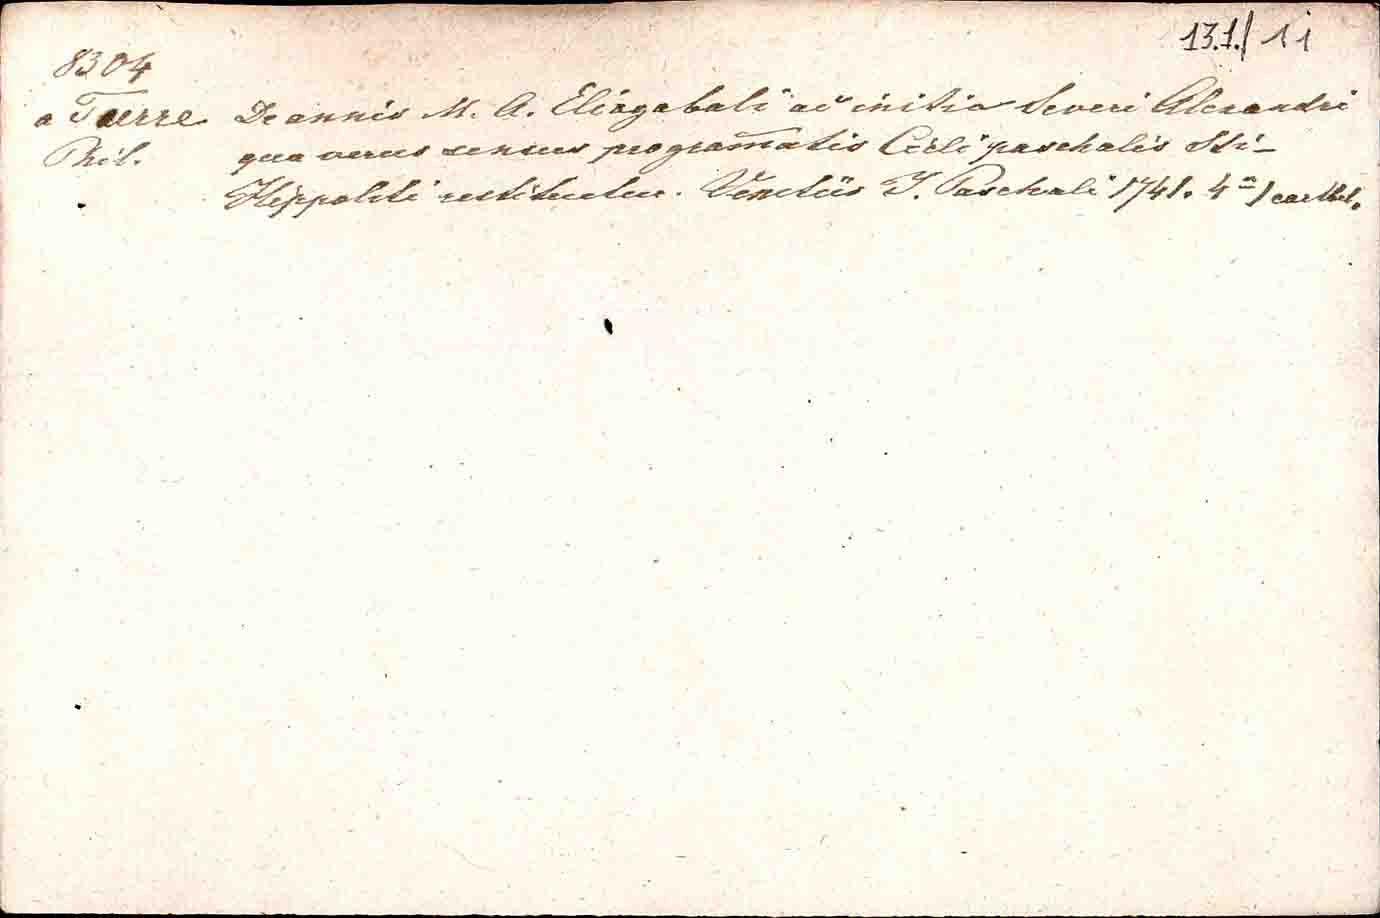 13.1./11
8304
a Turre De annis M. A. Elirgabali ac initia Severi Alexandri
Phil. qua verus sensus programatis Cicli paschalis Sti-
Hippoliti restituetur. Venetiis J. Paschali 1741. 4°